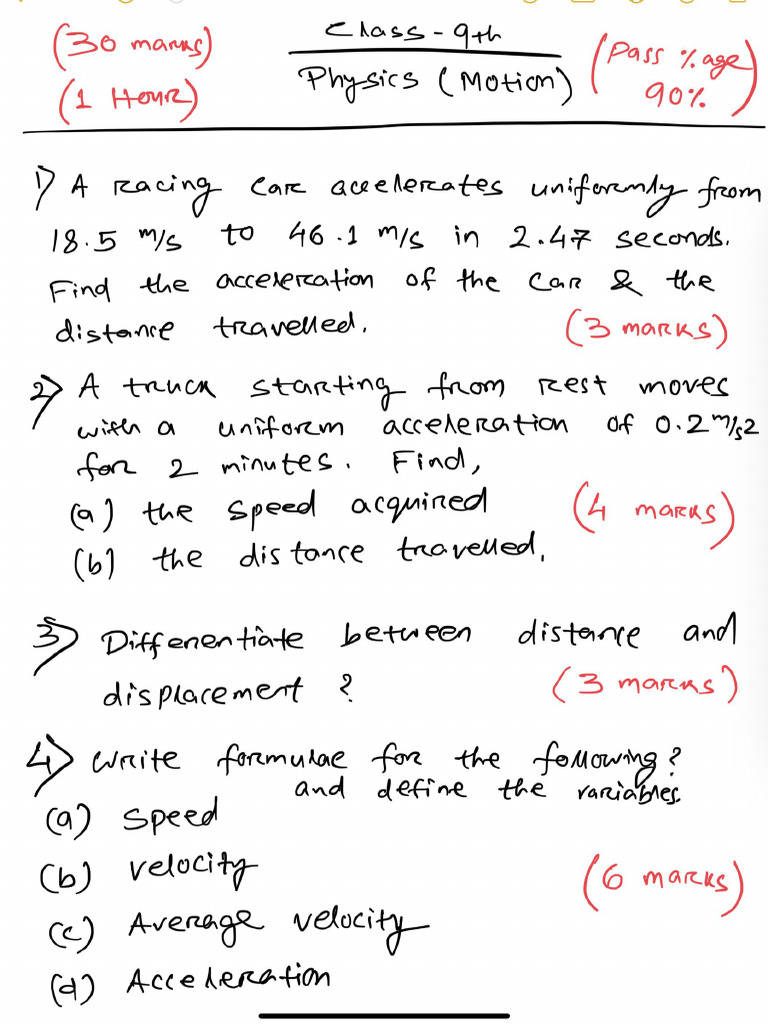 (30 marks)
(1 Hour)
Class - 9th
Physics (Motion)
(Pass %age
90%)
1) A racing car accelerates uniformly from
18.5 m/s to 46.1 m/s in 2.47 seconds.
Find the acceleration of the car & the
distance travelled.
(3 marks)
2) A truck starting from rest moves
with a uniform acceleration of 0.2 m/s2
for 2 minutes. Find,
(a) the speed acquired
(4 marks)
(b) the distance travelled.
3) Differentiate between distance and
displacement ?
(3 marks)
4) Write formulae for the following?
and define the variables.
(a) Speed
(b) velocity
(6 marks)
(c) Average velocity
(d) Acceleration